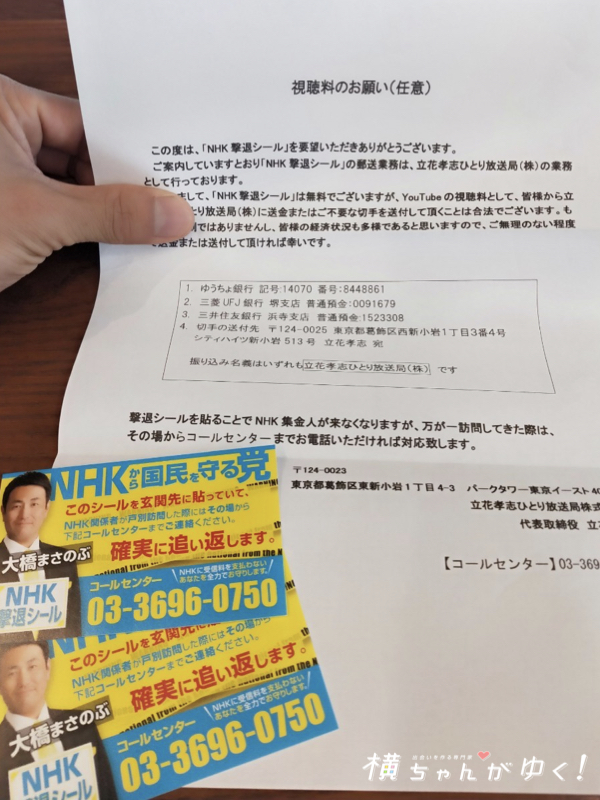 視聴料のお願い（任意）
この度は、「NHK撃退シール」を要望いただきありがとうございます。
ご案内していますとおり「NHK撃退シール」の郵送業務は、立花孝志ひとり放送局（株）の業務
として行っております。
まして、「NHK撃退シール」は無料でございますが、YouTubeの視聴料として、皆様から立
とり放送局（株）に送金またはご不要な切手を送付して頂くことは合法でございます。も
制ではありませんし、皆様の経済状況も多様であると思いますので、ご無理のない程度
送金または送付して頂ければ幸いです。
1. ゆうちょ銀行 記号:14070 番号:8448861
2. 三菱UFJ銀行 堺支店 普通預金:0091679
3. 三井住友銀行 浜寺支店 普通預金:1523308
4. 切手の送付先 〒124-0025 東京都葛飾区西新小岩1丁目3番4号
シティハイツ新小岩513号 立花孝志 宛
振り込み名義はいずれも 立花孝志ひとり放送局（株） です
撃退シールを貼ることでNHK集金人が来なくなりますが、万が一訪問してきた際は、
その場からコールセンターまでお電話いただければ対応致します。
〒124-0023
東京都葛飾区東新小岩1丁目4-3 パークタワー東京イースト40
立花孝志ひとり放送局株式
代表取締役 立花
【コールセンター】03-369
NHKから国民を守る党
このシールを玄関先に貼っていて、
NHK関係者が戸別訪問した際にはその場から
下記コールセンターまでご連絡ください。
確実に追い返します。
大橋まさのぶ
NHK
撃退シール
コールセンター
NHKに受信料を支払わない
あなたを全力でお守りします。
03-3696-0750
このシールを玄関先に
NHK関係者が戸別訪問した際にはその場から
下記コールセンターまでご連絡ください。
確実に追い返します。
大橋まさのぶ
NHK
撃退シール
コールセンター
NHKに受信料を支払わない
あなたを全力でお守りします。
03-3696-0750
横ちゃんがゆく!